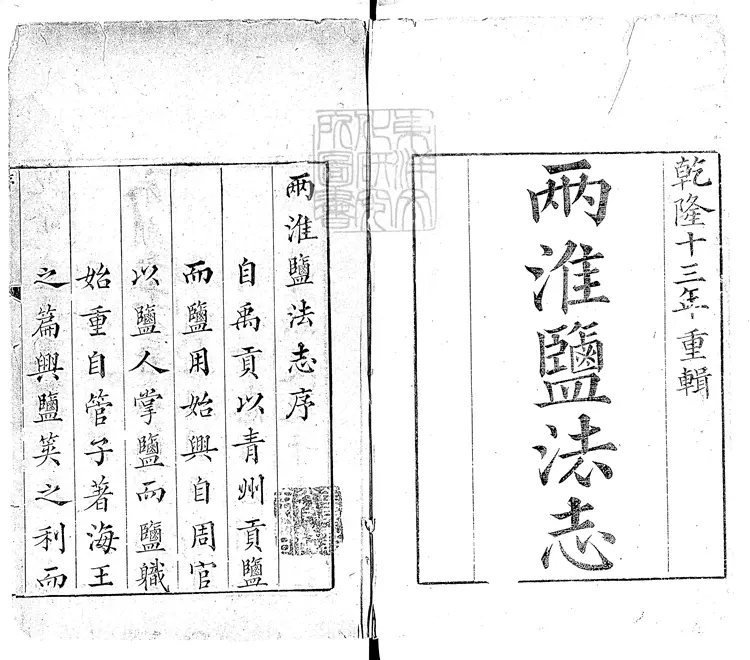 乾隆十三年重輯
兩淮鹽法志
兩淮鹽法志序
自禹貢以青州貢鹽
而鹽用始興自周官
以鹽人掌鹽而鹽職
始重自管子著海王
之篇興鹽筴之利而
東洋文
化研究
所圖書